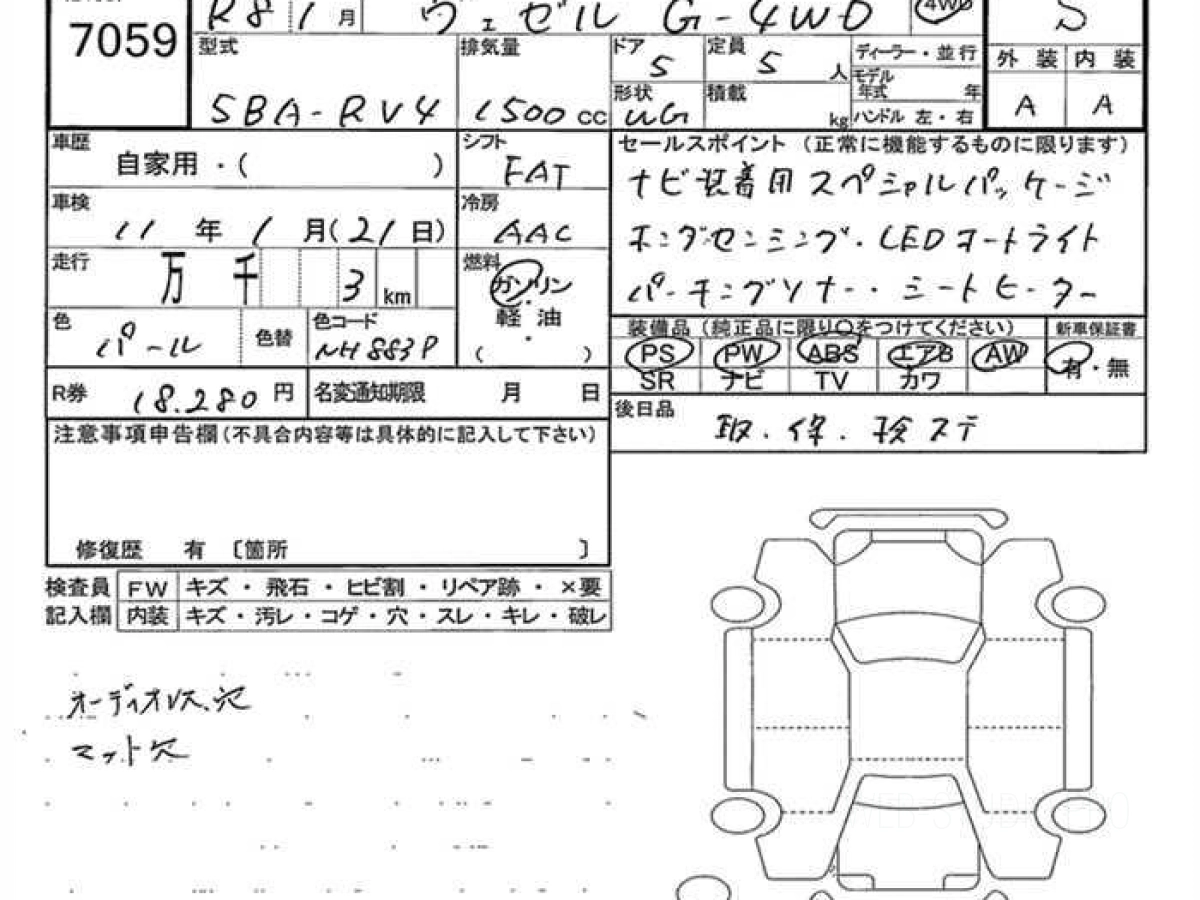 R8 1月 ヴェゼル G-4WD 4WD S
7059
型式 SBA-RV4
排気量 1500 cc
ドア 5
定員 5 人
形状 WG
積載 kg
ディーラー・並行
モデル年式 年
ハンドル 左・右
外装 内装
A A
車歴 自家用・( )
シフト FAT
車検 11年 1月(21日)
冷房 AAC
走行 万 千 3 km
燃料 ガソリン・軽油・( )
色 パール 色替
色コード NH883P
R券 18.280 円
名変通知期限 月 日
セールスポイント (正常に機能するものに限ります)
ナビ装着用スペシャルパッケージ
ホンダセンシング・LEDオートライト
パーキングソナー・シートヒーター
装備品 (純正品に限り○をつけてください) 新車保証書
PS PW ABS エアB AW 有・無
SR ナビ TV カワ
後日品 取.保.検ステ
注意事項申告欄(不具合内容等は具体的に記入して下さい)
修復歴 有 〔箇所 〕
検査員 FW キズ・飛石・ヒビ割・リペア跡・×要
記入欄 内装 キズ・汚レ・コゲ・穴・スレ・キレ・破レ
オーディオレス.穴
マット欠